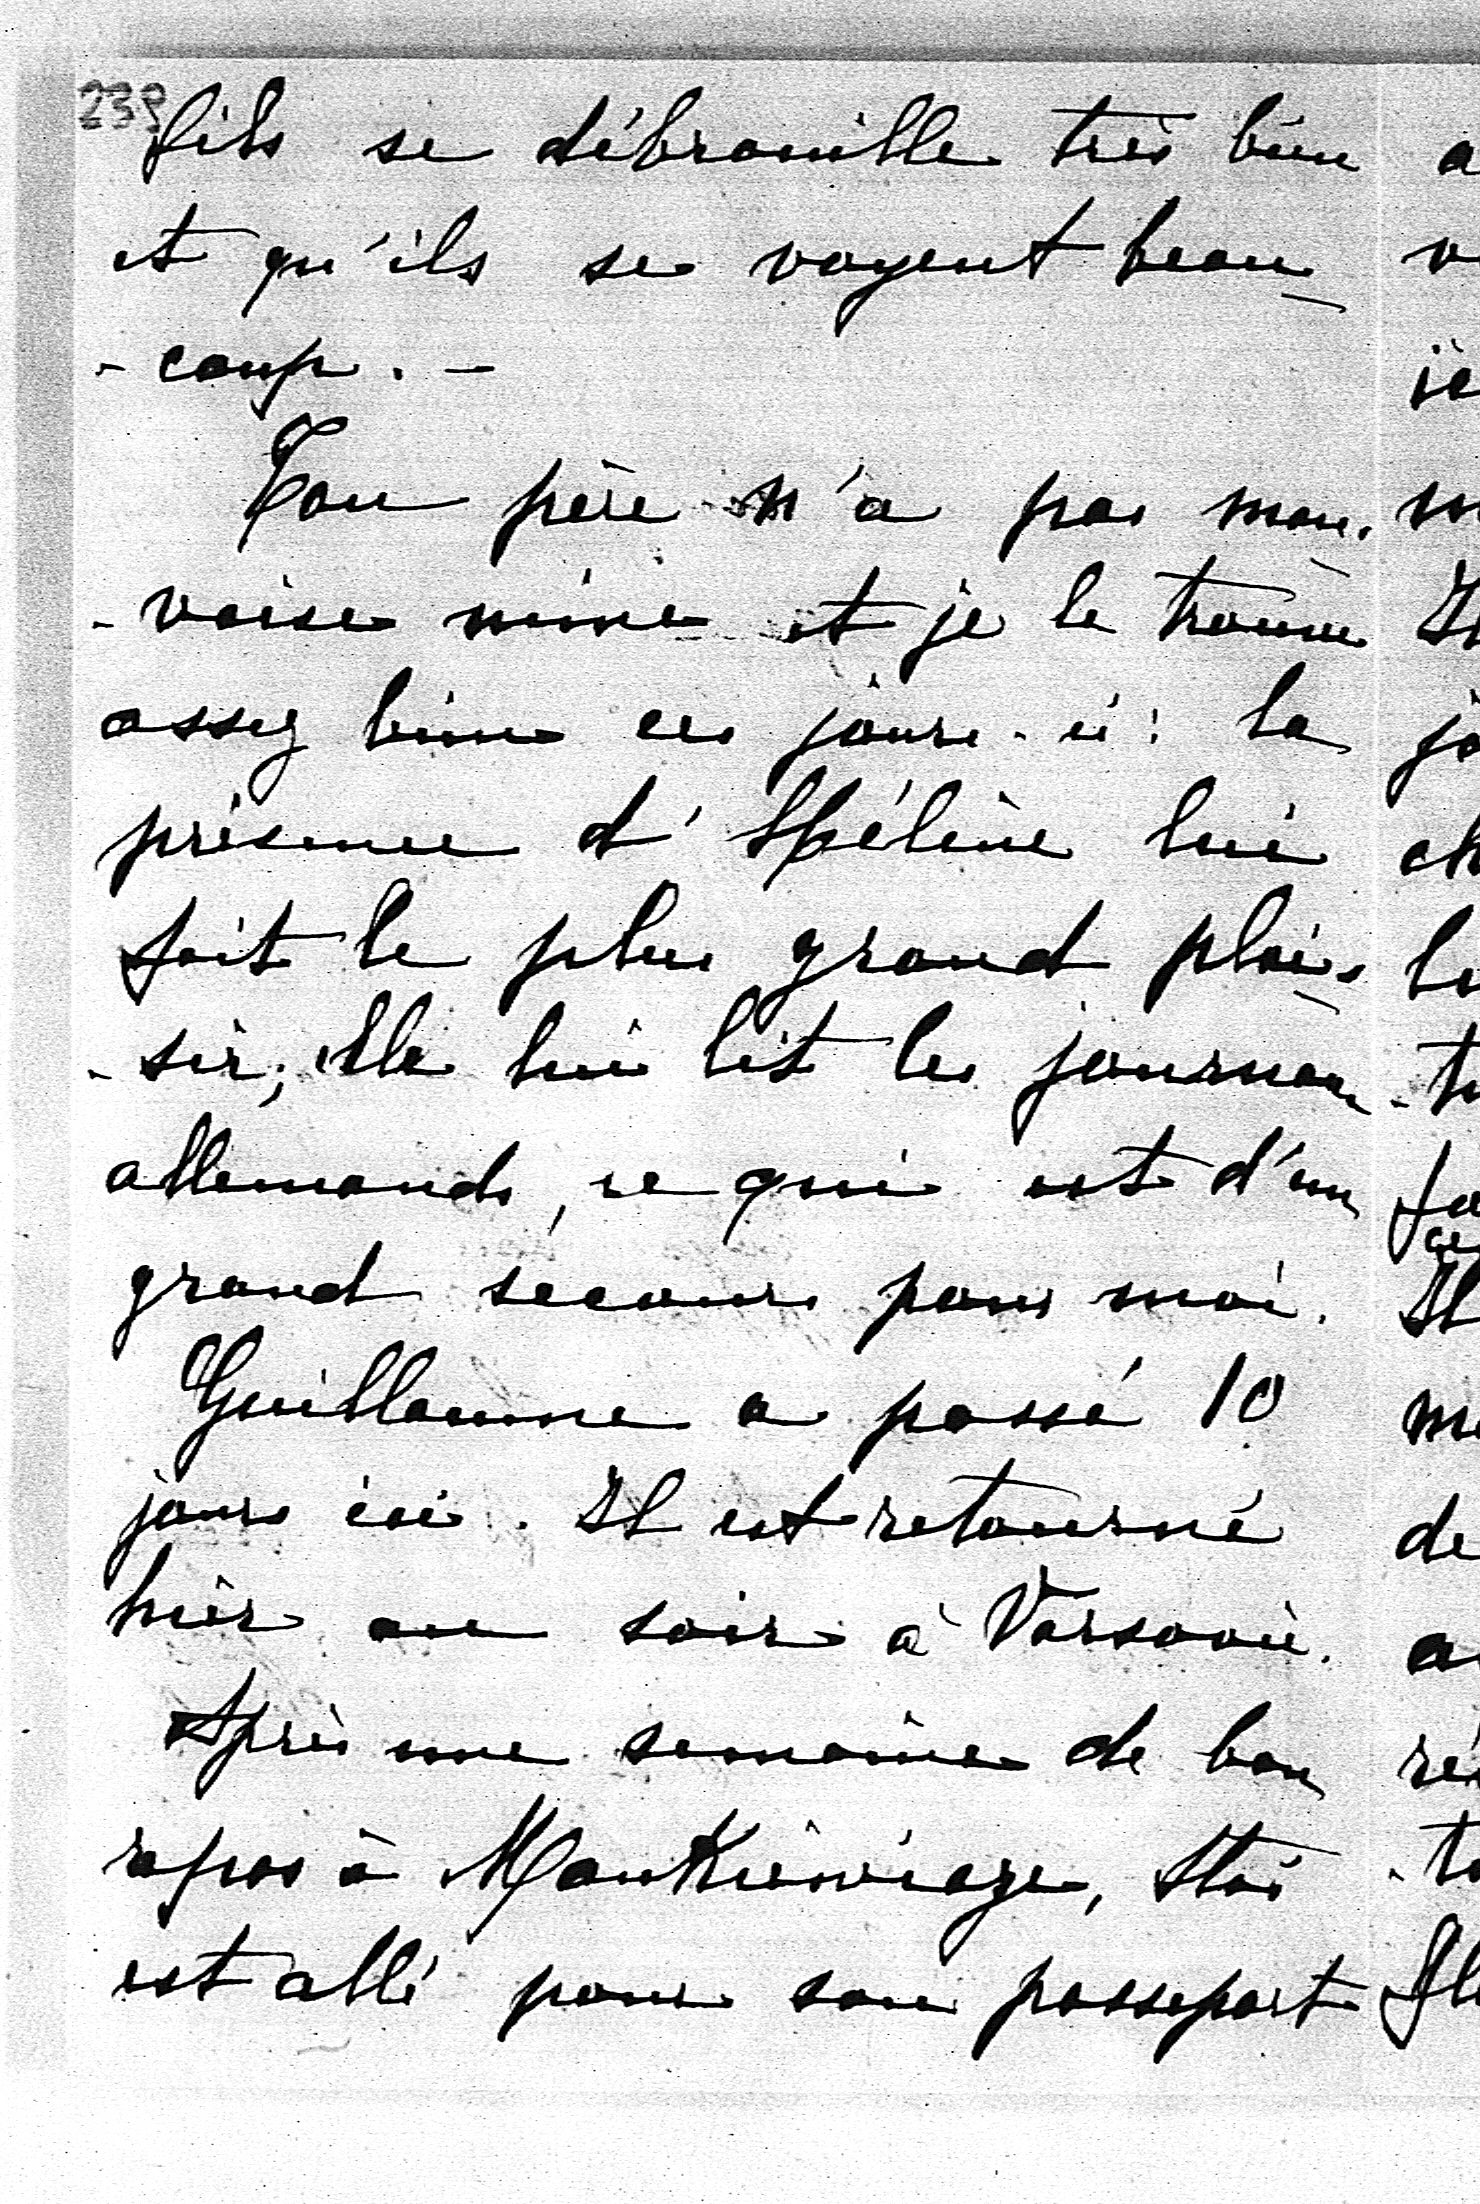 239
fils se débrouille très bien
et qu'ils se voyent beau-
-coup. -
Ton père n'a pas mau-
-vaise mine et je le trouve
assez bien ces jours-ci: la
présence d'Hélène lui
fait le plus grand plai-
-sir; elle lui lit les journaux
allemands, ce qui est d'un
grand secours pour moi.
Guillaume a passé 10
jours ici. Il est retourné
hier au soir à Varsovie.
Après une semaine de bon
repos à Mankiewicze, Stas
est allé pour son passeport